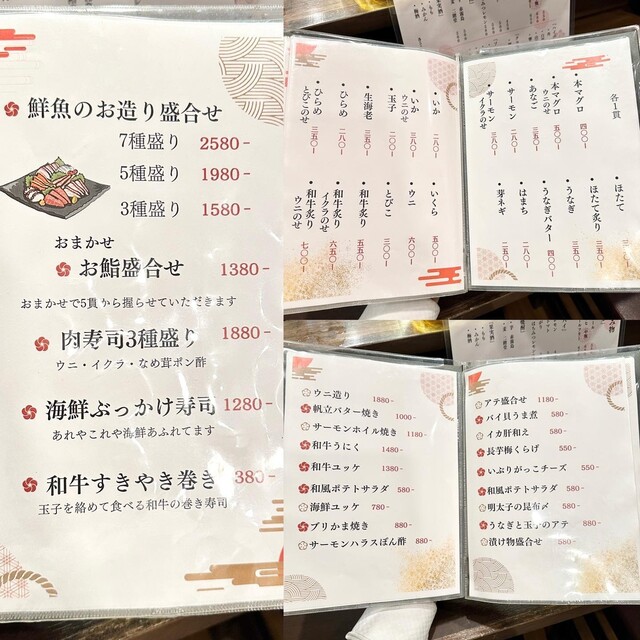 鮮魚のお造り盛合せ
7種盛り 2580-
5種盛り 1980-
3種盛り 1580-
おまかせ
お鮨盛合せ 1380-
おまかせで5貫から握らせていただきます
肉寿司3種盛り 1880-
ウニ・イクラ・なめ茸ポン酢
海鮮ぶっかけ寿司 1280-
あれやこれや海鮮あふれてます
和牛すきやき巻き 380-
玉子を絡めて食べる和牛の巻き寿司
各1貫
・本マグロ 四〇〇-
・本マグロウニのせ 五〇〇-
・あなご 三五〇-
・サーモン 二八〇-
・サーモンイクラのせ 三八〇-
・ほたて
・ほたて炙り
・うなぎ
・うなぎバター 四〇
・はまち 二八〇-
・芽ネギ 二五〇-
・いか 二八〇-
・いかウニのせ 三八〇-
・玉子 二〇〇-
・生海老 三五〇-
・ひらめ 二八〇-
・ひらめとびこのせ 三五〇-
・いくら 五〇〇-
・ウニ
・とびこ 三〇〇-
・和牛炙り 五五〇-
・和牛炙りイクラのせ 六五〇-
・和牛炙りウニのせ 七〇〇-
ウニ造り 1880-
帆立バター焼き 1000-
サーモンホイル焼き 1180-
和牛うにく 1480-
和牛ユッケ 1380-
和風ポテトサラダ 580-
海鮮ユッケ 780-
ブリかま焼き 880-
サーモンハラスぽん酢 880-
アテ盛合せ 1180-
バイ貝うま煮 580-
イカ肝和え 580-
長芋梅くらげ 550-
いぶりがっこチーズ 550-
和風ポテトサラダ 580-
明太子の昆布〆 580-
うなぎと玉子のアテ 880-
漬け物盛合せ 580-